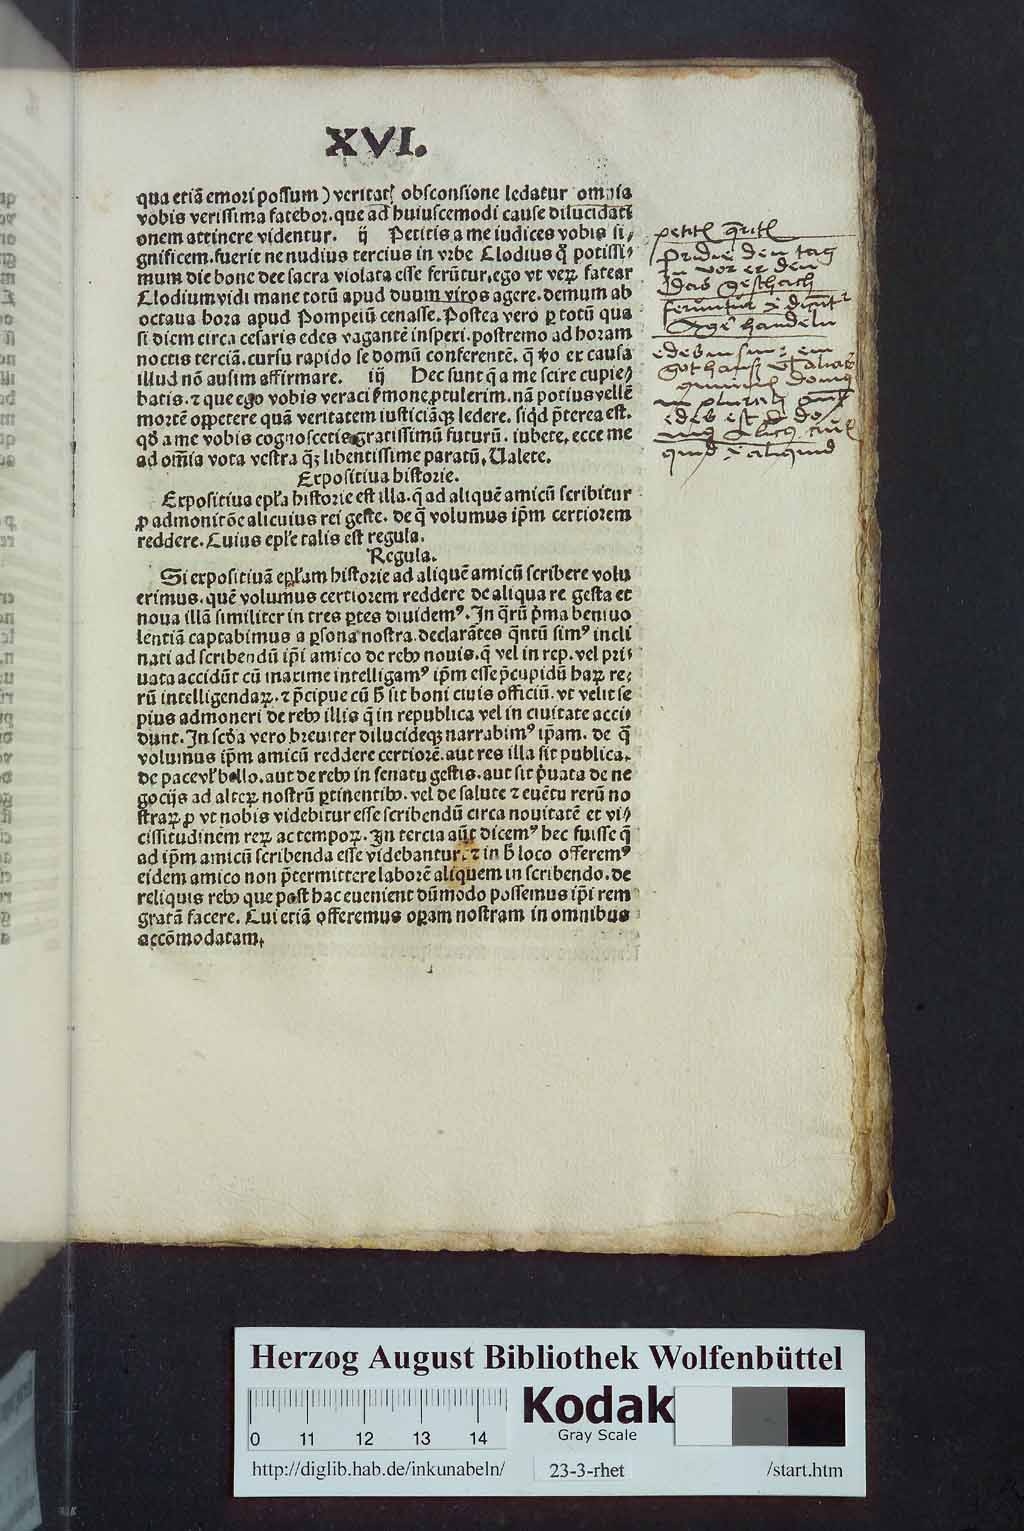 XVI.
qua etiã emori possum) veritati obsconsione ledatur omnia
vobis verissima fatebor. que ad huiuscemodi cause dilucidati
onem attinere videntur. ij Petitis a me iudices vobis si/
gnificem. fuerit ne nudius tercius in vrbe Clodius qͦ potissi/
mum die bone dee sacra violata esse ferũtur. ego vt veꝝ fatear
Clodium vidi mane totũ apud duum viros agere. demum ab
octaua hora apud Pompeiũ cenasse. Postea vero ꝑ totũ qua
si diem circa cesaris edes vagantẽ inspexi. postremo ad horam
noctis terciã. cursu rapido se domũ conferentẽ. q̃ ꝟo ex causa
illud nõ ausim affirmare. iij Hec sunt q̃ a me scire cupie/
batis. ⁊ que ego vobis veraci ẜmone ꝓtulerim. nã potius vellẽ
mortẽ oppetere quã veritatem iusticiãqꝫ ledere. siqͥd p̃terea est.
qḋ a me vobis cognoscetis gratissimũ futurũ. iubete. ecce me
ad om̃ia vota vestra qꝫ libentissime paratũ. Ualete.
Expositiua historie.
Expositiua epl̃a historie est illa. q̃ ad aliquẽ amicũ scribitur
ꝓ admonitõe alicuius rei geste. de q̃ volumus ip̃m certiorem
reddere. Cuius epl̃e talis est regula.
Regula.
Si expositiuã epl̃am historie ad aliquẽ amicũ scribere volu
erimus. quẽ volumus certiorem reddere de aliqua re gesta et
noua illã similiter in tres ꝑtes diuidemꝰ. In q̃rũ pͥma beniuo
lentiã captabimus a ꝑsona nostra. declarãtes q̃ntũ simꝰ incli
nati ad scribendũ ip̃i amico de rebꝫ nouis. q̃ vel in rep. vel pri/
uata accidũt cũ maxime intelligamꝰ ip̃m esse p̃cupidũ haꝝ re/
rũ intelligendaꝝ. ⁊ p̃cipue cũ h̃ sit boni ciuis officiũ. vt velit se
pius admoneri de rebꝫ illis q̃ in republica vel in ciuitate acci/
dunt. In scḋa vero breuiter dilucideqꝫ narrabimꝰ ip̃am. de q̃
volumus ip̃m amicũ reddere certiorẽ. aut res illa sit publica.
de pace vl̃ bello. aut de rebꝫ in senatu gestis. aut sit pͥuata de ne
gocijs ad alteꝝ nostrũ ꝑtinentibꝫ. vel de salute ⁊ euẽtu rerũ no
straꝝ ꝓ vt nobis videbitur esse scribendũ circa nouitatẽ et vi/
cissitudinem reꝝ ac tempoꝝ. In tercia aũt dicemꝰ hec fuisse q̃
ad ip̃m amicũ scribenda esse videbantur. ⁊ in h̃ loco offeremꝰ
eidem amico non p̃termittere laborẽ aliquem in scribendo. de
reliquis rebꝫ que post hac euenient dũmodo possemus ip̃i rem
gratã facere. Cui etiã offeremus oꝑam nostram in omnibus
accõmodatam.
Pridie den tag
vor er den
das gesthach
handeln
edes in sin
domus
in plurali
edes est
quid aliquid
Herzog August Bibliothek Wolfenbüttel
0 11 12 13 14
Kodak
Gray Scale
http://diglib.hab.de/inkunabeln/ 23-3-rhet /start.htm